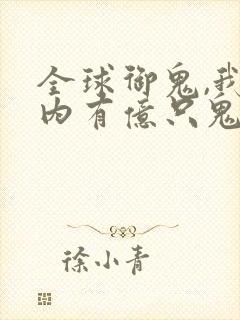 全球御鬼,我
内有億只鬼
徐小青